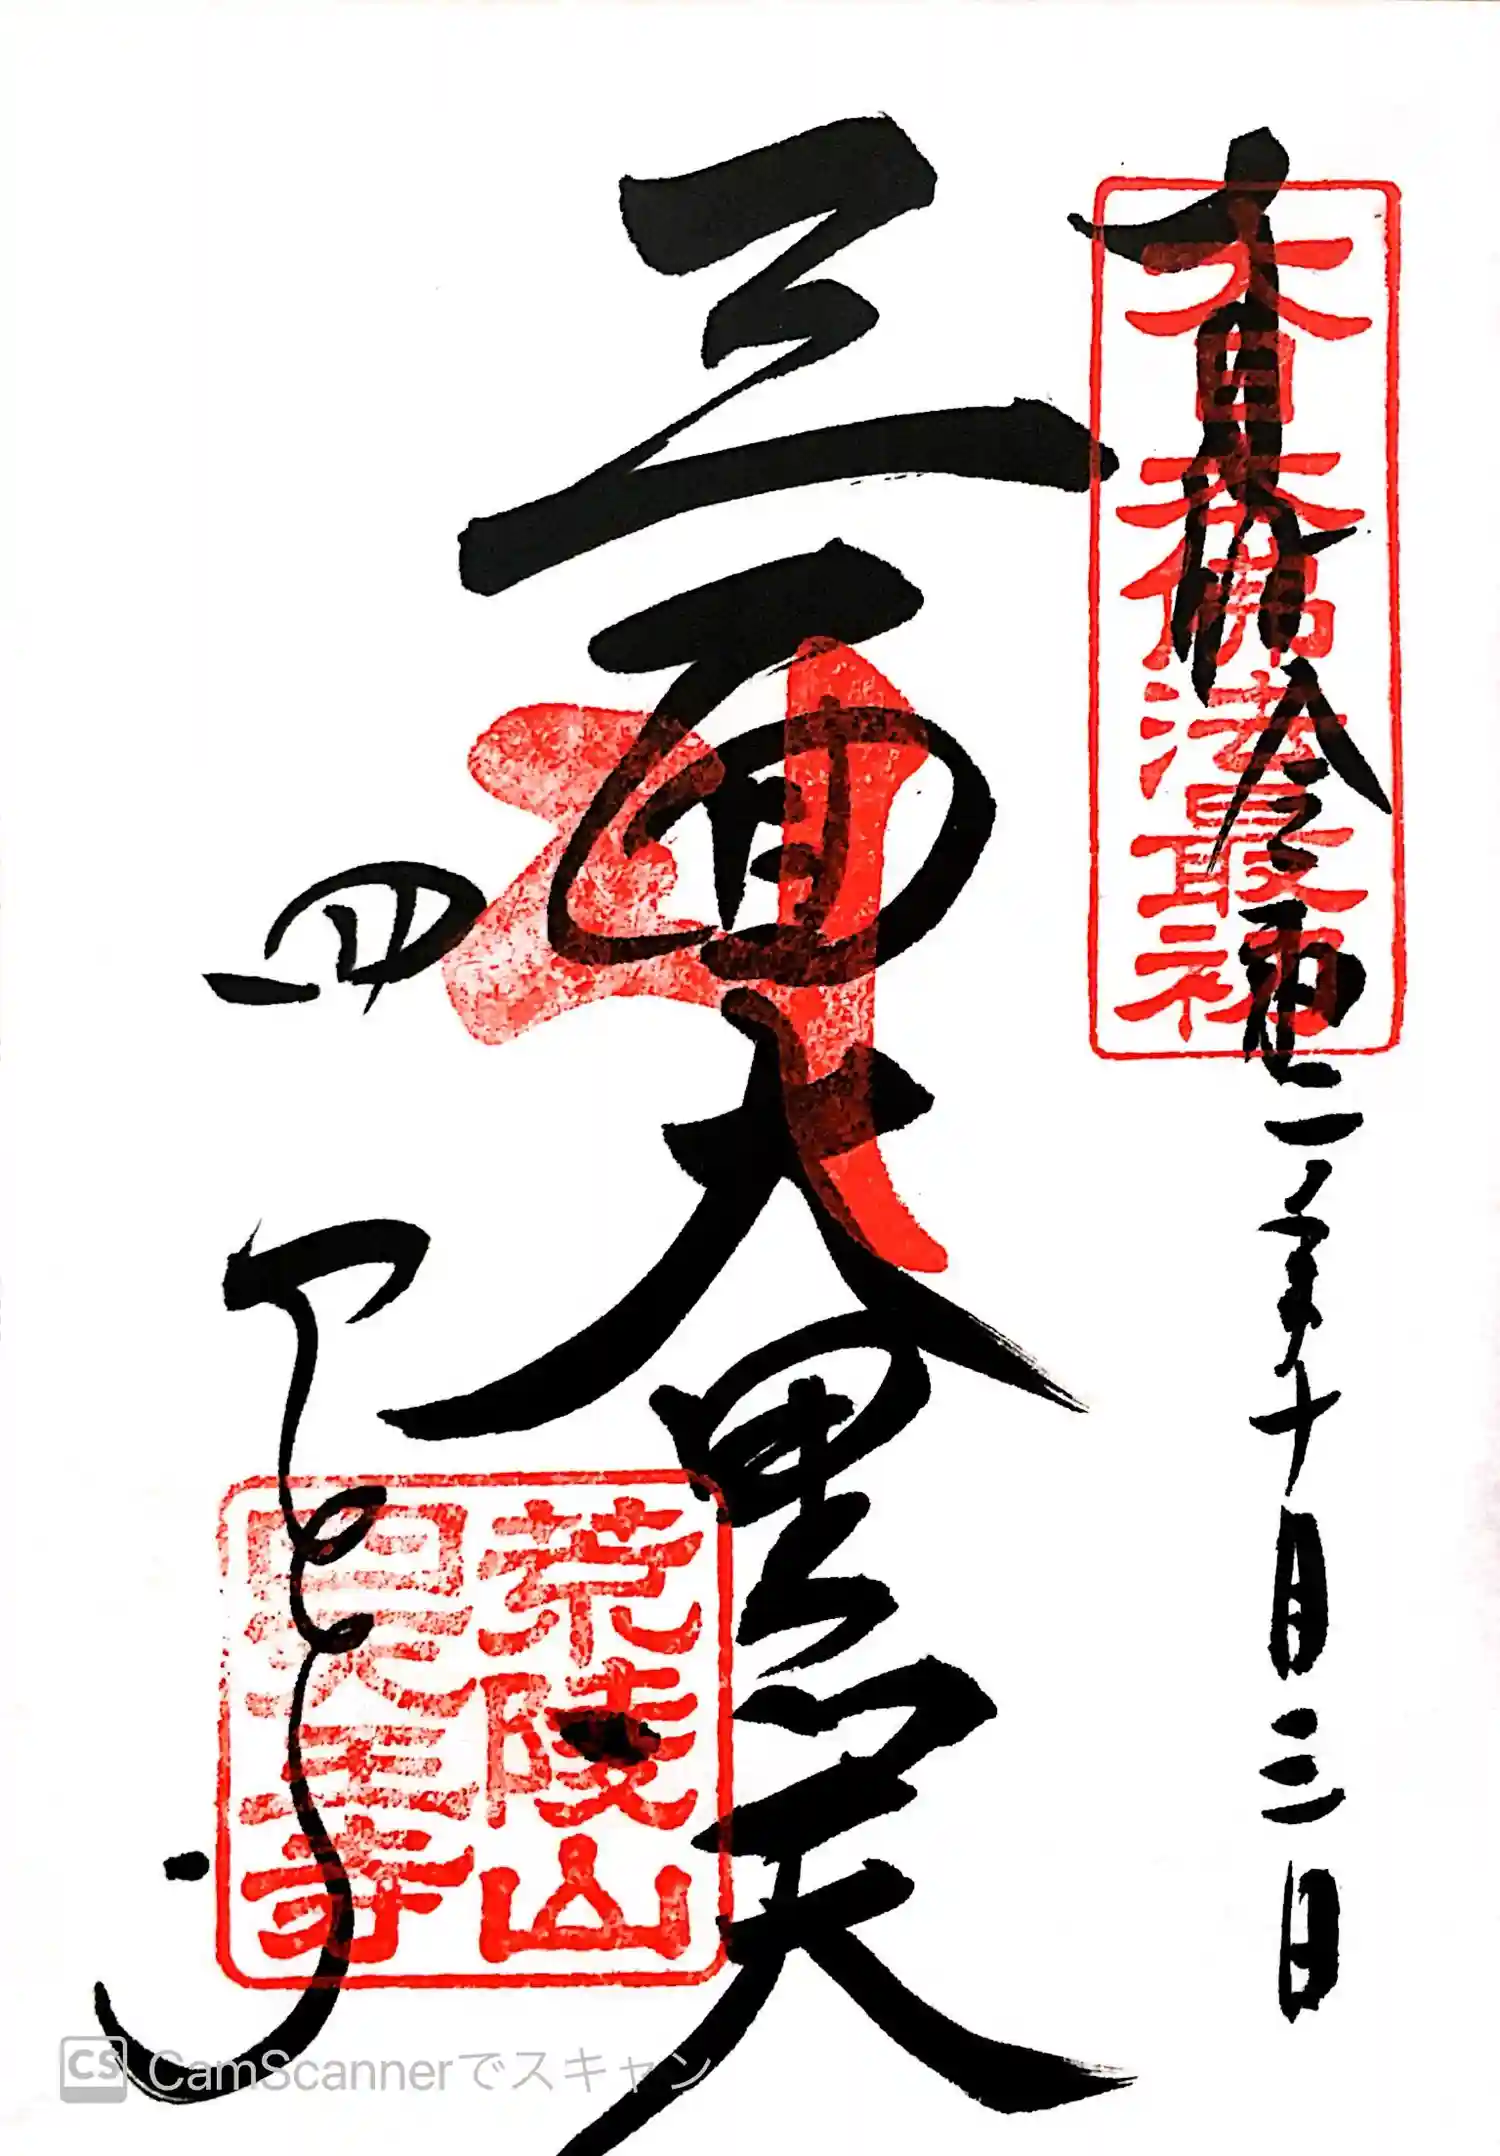 奉拝 令和二年十月三日
大日本佛法最初
三面大黒天
四天王寺
荒陵山
四天王寺
CS CamScannerでスキャン